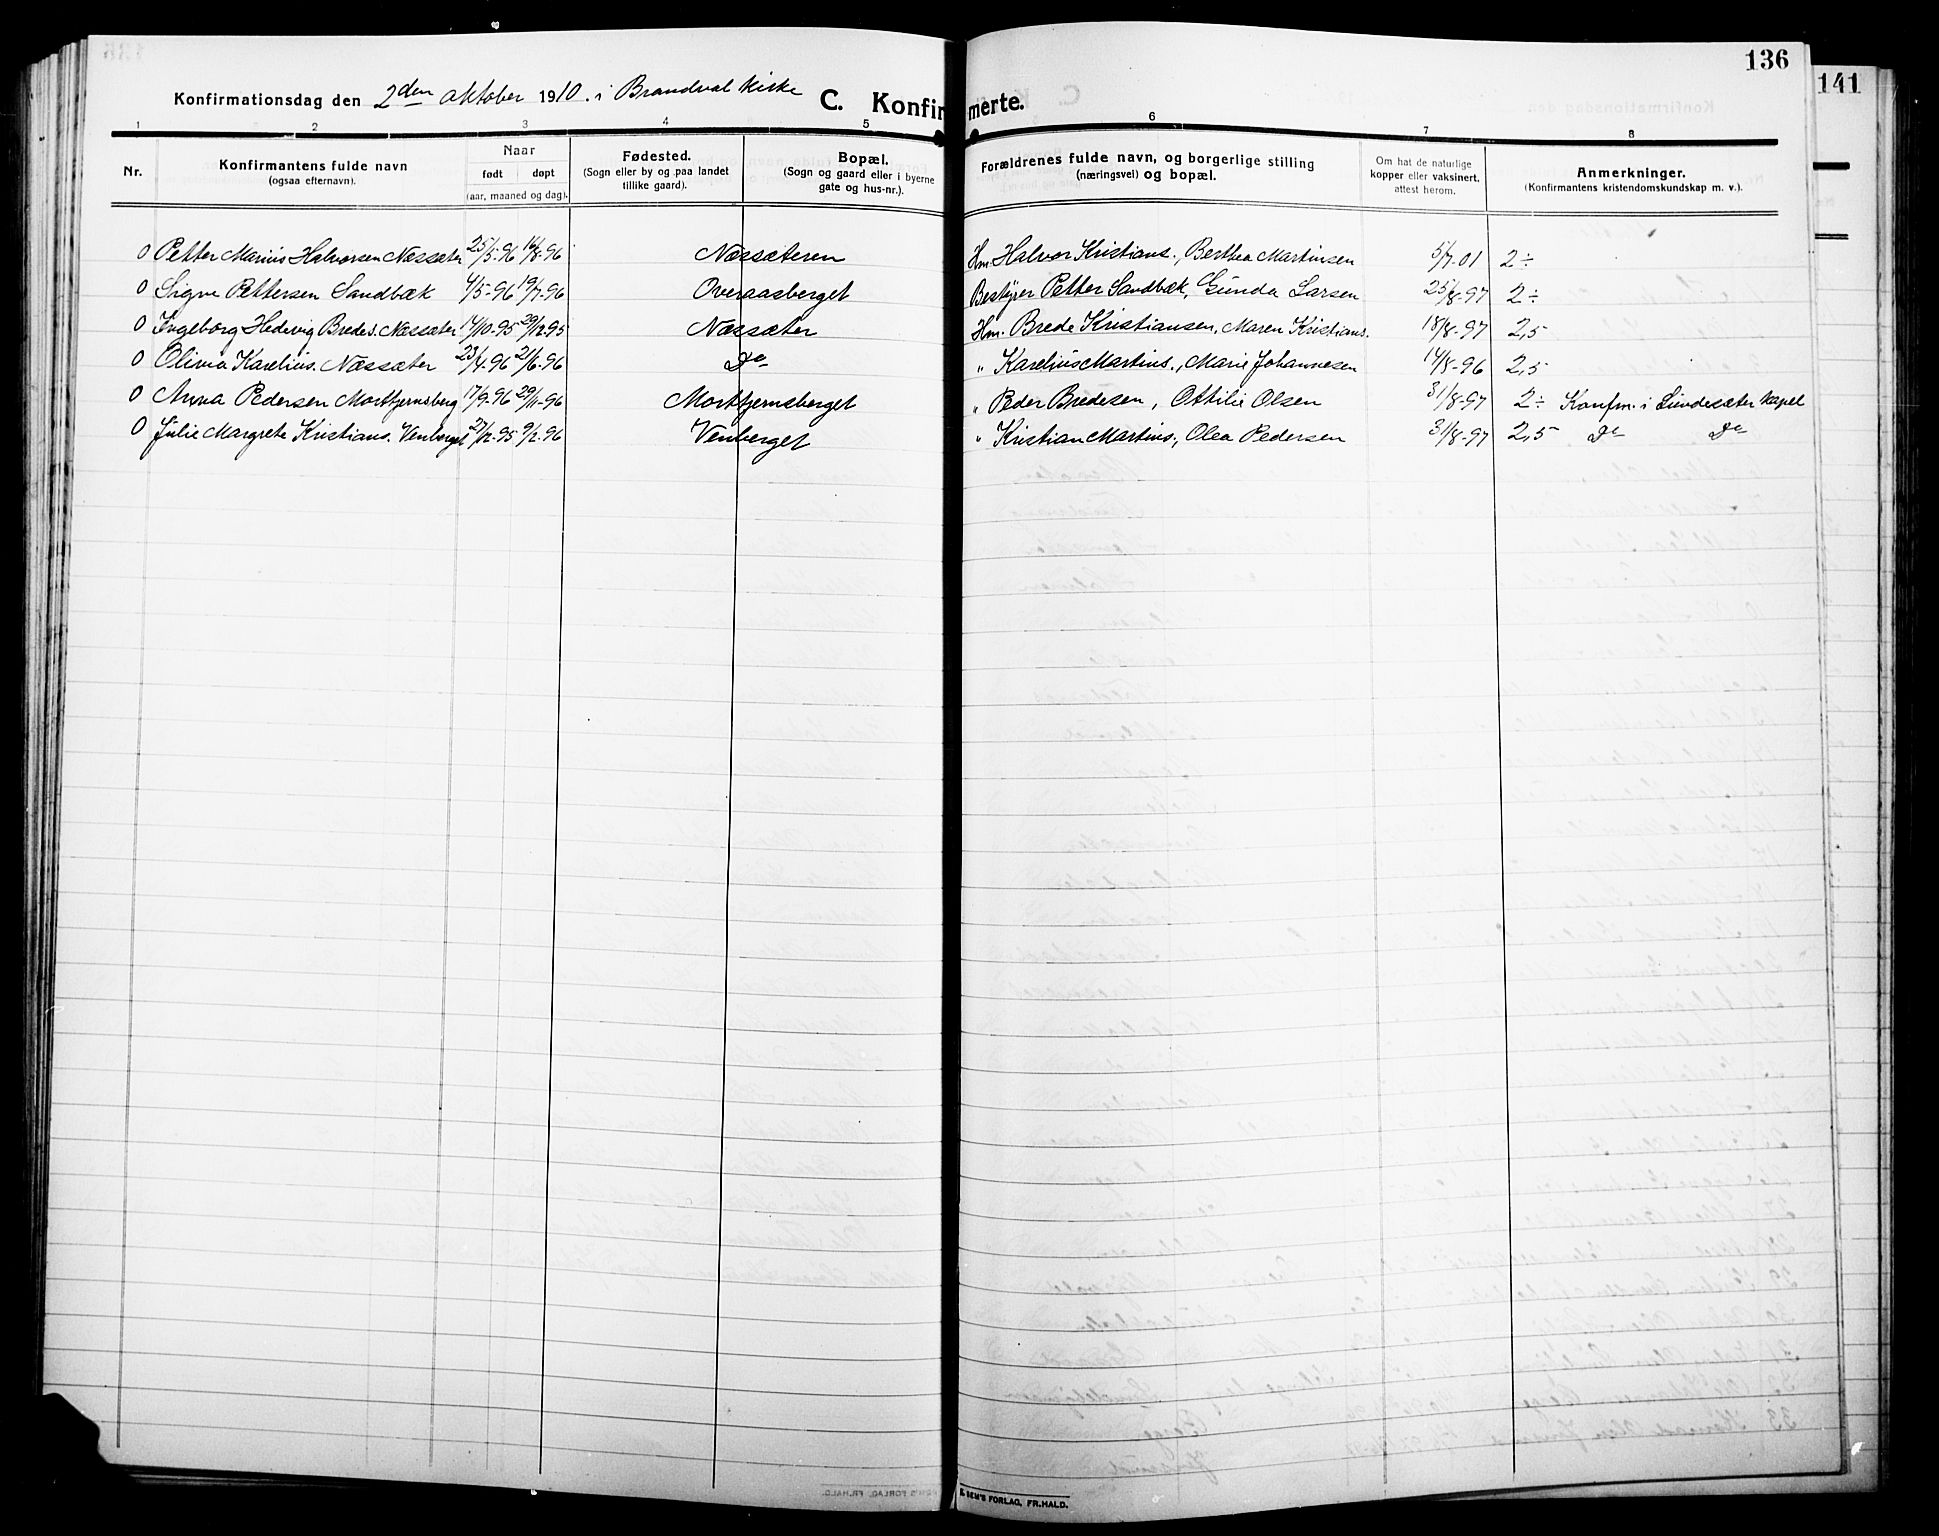 136
141
Konfirmationsdag den 2den oktober 1910. i Brandval kirke C. Konfirmerte.
1 2 3 4 5 6 7 8
Nr. Konfirmantens fulde navn (ogsaa efternavn). Naar født døpt (aar, maaned og dag). Fødested. (Sogn eller by og paa landet tillike gaard). Bopæl. (Sogn og gaard eller i byerne gate og hus-nr.). Forældrenes fulde navn, og borgerlige stilling (næringsvei) og bopæl. Om hat de naturlige kopper eller vaksinert. attest herom. Anmerkninger. (Konfirmantens kristendomskundskap m. v.).
0 Petter Marius Halvorsen Næssæter 25/5-96 16/8-96 Næssæteren Hm. Halvor Kristians., Berthea Martinsen 5/7-01 2÷
0 Signe Pettersen Sandbæk 4/5-96 19/7-96 Overaasberget Bestyrer Petter Sandbæk, Gunda Larsen 25/8-97 2÷
0 Ingeborg Hedevig Bredes. Næssæter 17/10-95 29/12-95 Næssæter Hm. Brede Kristiansen, Maren Kristians. 18/8-97 2,5
0 Olivia Karelius. Næssæter 23/4-96 21/6-96 Do " Karelius Martins., Marie Johannesen 14/8-96 2,5
0 Anna Pedersen Morttjernsberg 17/9-96 29/11-96 Morttjernsberget " Peder Bredesen, Ottilie Olsen 31/8-97 2÷ Konfm. i Lundersæter kapel
0 Julie Margrete Kristians. Venberget 27/12-95 9/2-96 Venberget " Kristian Martins., Olea Pedersen 31/8-97 2,5 Do Do
SEM'S FORLAG, FR.HALD.